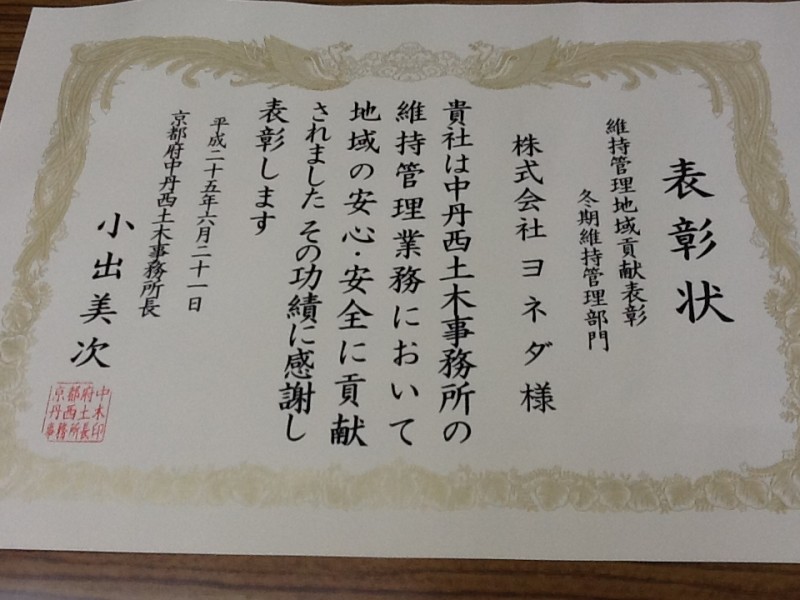 表彰状
維持管理地域貢献表彰
冬期維持管理部門
株式会社ヨネダ様
貴社は中丹西土木事務所の
維持管理業務において
地域の安心・安全に貢献
されました その功績に感謝し
表彰します
平成二十五年六月二十一日
京都府中丹西土木事務所長
小出美次
京都府中
丹西土木
事務所長印